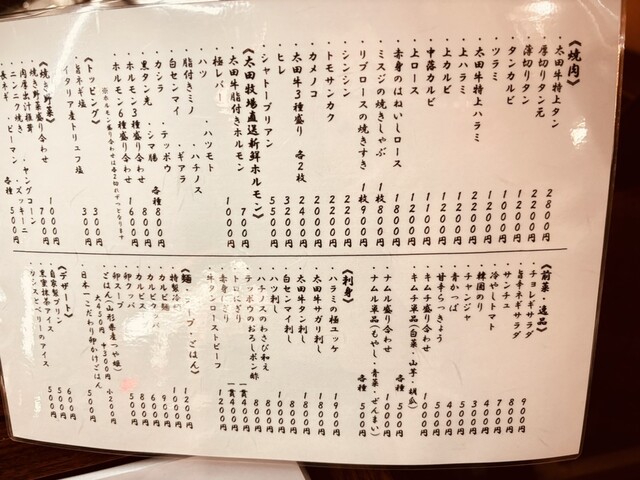 《焼肉》
・太田牛特上タン 2800円
・厚切りタン元 2200円
・薄切りタン 2200円
・タンカルビ 1200円
・ツラミ 1000円
・太田牛特上ハラミ
・上ハラミ
・上カルビ
・中落カルビ
・上ロース 1200円
・赤身のはねいしロース 1800円
・ミスジの焼きしゃぶ 1枚800円
・リブロースの焼きすき 1枚900円
・シンシン
・トモサンカク 2200円
・カメノコ
・太田牛3種盛り 各2枚
・ヒレ 3200円
・シャトーブリアン 5500円
《太田牧場直送新鮮ホルモン》
・太田牛脂付きホルモン 1000円
・極レバー 700円
・ハツ ・ハツモト
・脂付きミノ ・ハチノス
・白センマイ ・ギアラ
・カシラ ・テッポウ 各種800円
・黒タン先 ・シマ腸 800円
・ホルモン3種盛り合わせ 1600円
・ホルモン6種盛り合わせ
※ホルモン盛り合わせは各2切れずつとなります
《トッピング》
・旨ネギ塩 300円
・イタリア産トリュフ塩 300円
《焼き野菜》
・焼き野菜盛り合わせ 1000円
・肉厚出汁椎茸 700円
・ニンニク焼き ・ヤングコーン
・長ネギ ・ピーマン ・ズッキーニ 各種500円
《前菜・逸品》
・チョレギサラダ 900円
・旨辛ネギサラダ 800円
・サンチュ 500円
・冷やしトマト 700円
・韓国のり 400円
・チャンジャ 500円
・青かっぱ 300円
・甘辛らっきょう 400円
・キムチ盛り合わせ 1000円
・キムチ単品(白菜・山芋・胡瓜) 各種500円
・ナムル盛り合わせ 1000円
・ナムル単品(もやし・青菜・ぜんまい) 各種500円
《刺身》
・ハラミの極ユッケ 1900円
・太田牛サガリ刺し 1800円
・太田牛タン刺し 1800円
・白センマイ刺し
・ハツ刺し
・ハチノスのわさび和え 800円
・テッポウのおろしポン酢 800円
・トロにぎり 一貫400円
・赤身にぎり 一貫400円
・牛タンローストビーフ 1200円
《麺・スープ・ごはん》
・特製冷麺 1200円
・カルビ麺 1000円
・カルビクッパ 900円
・カルビスープ 800円
・卵クッパ 600円
・卵スープ 500円
・ごはん(山形県産つや姫) 大450円 中300円 小200円
・日本一こだわり卵かけごはん 500円
《デザート》
・自家製プリン 600円
・黒蜜抹茶アイス 500円
・カシスとベリーのアイス 500円